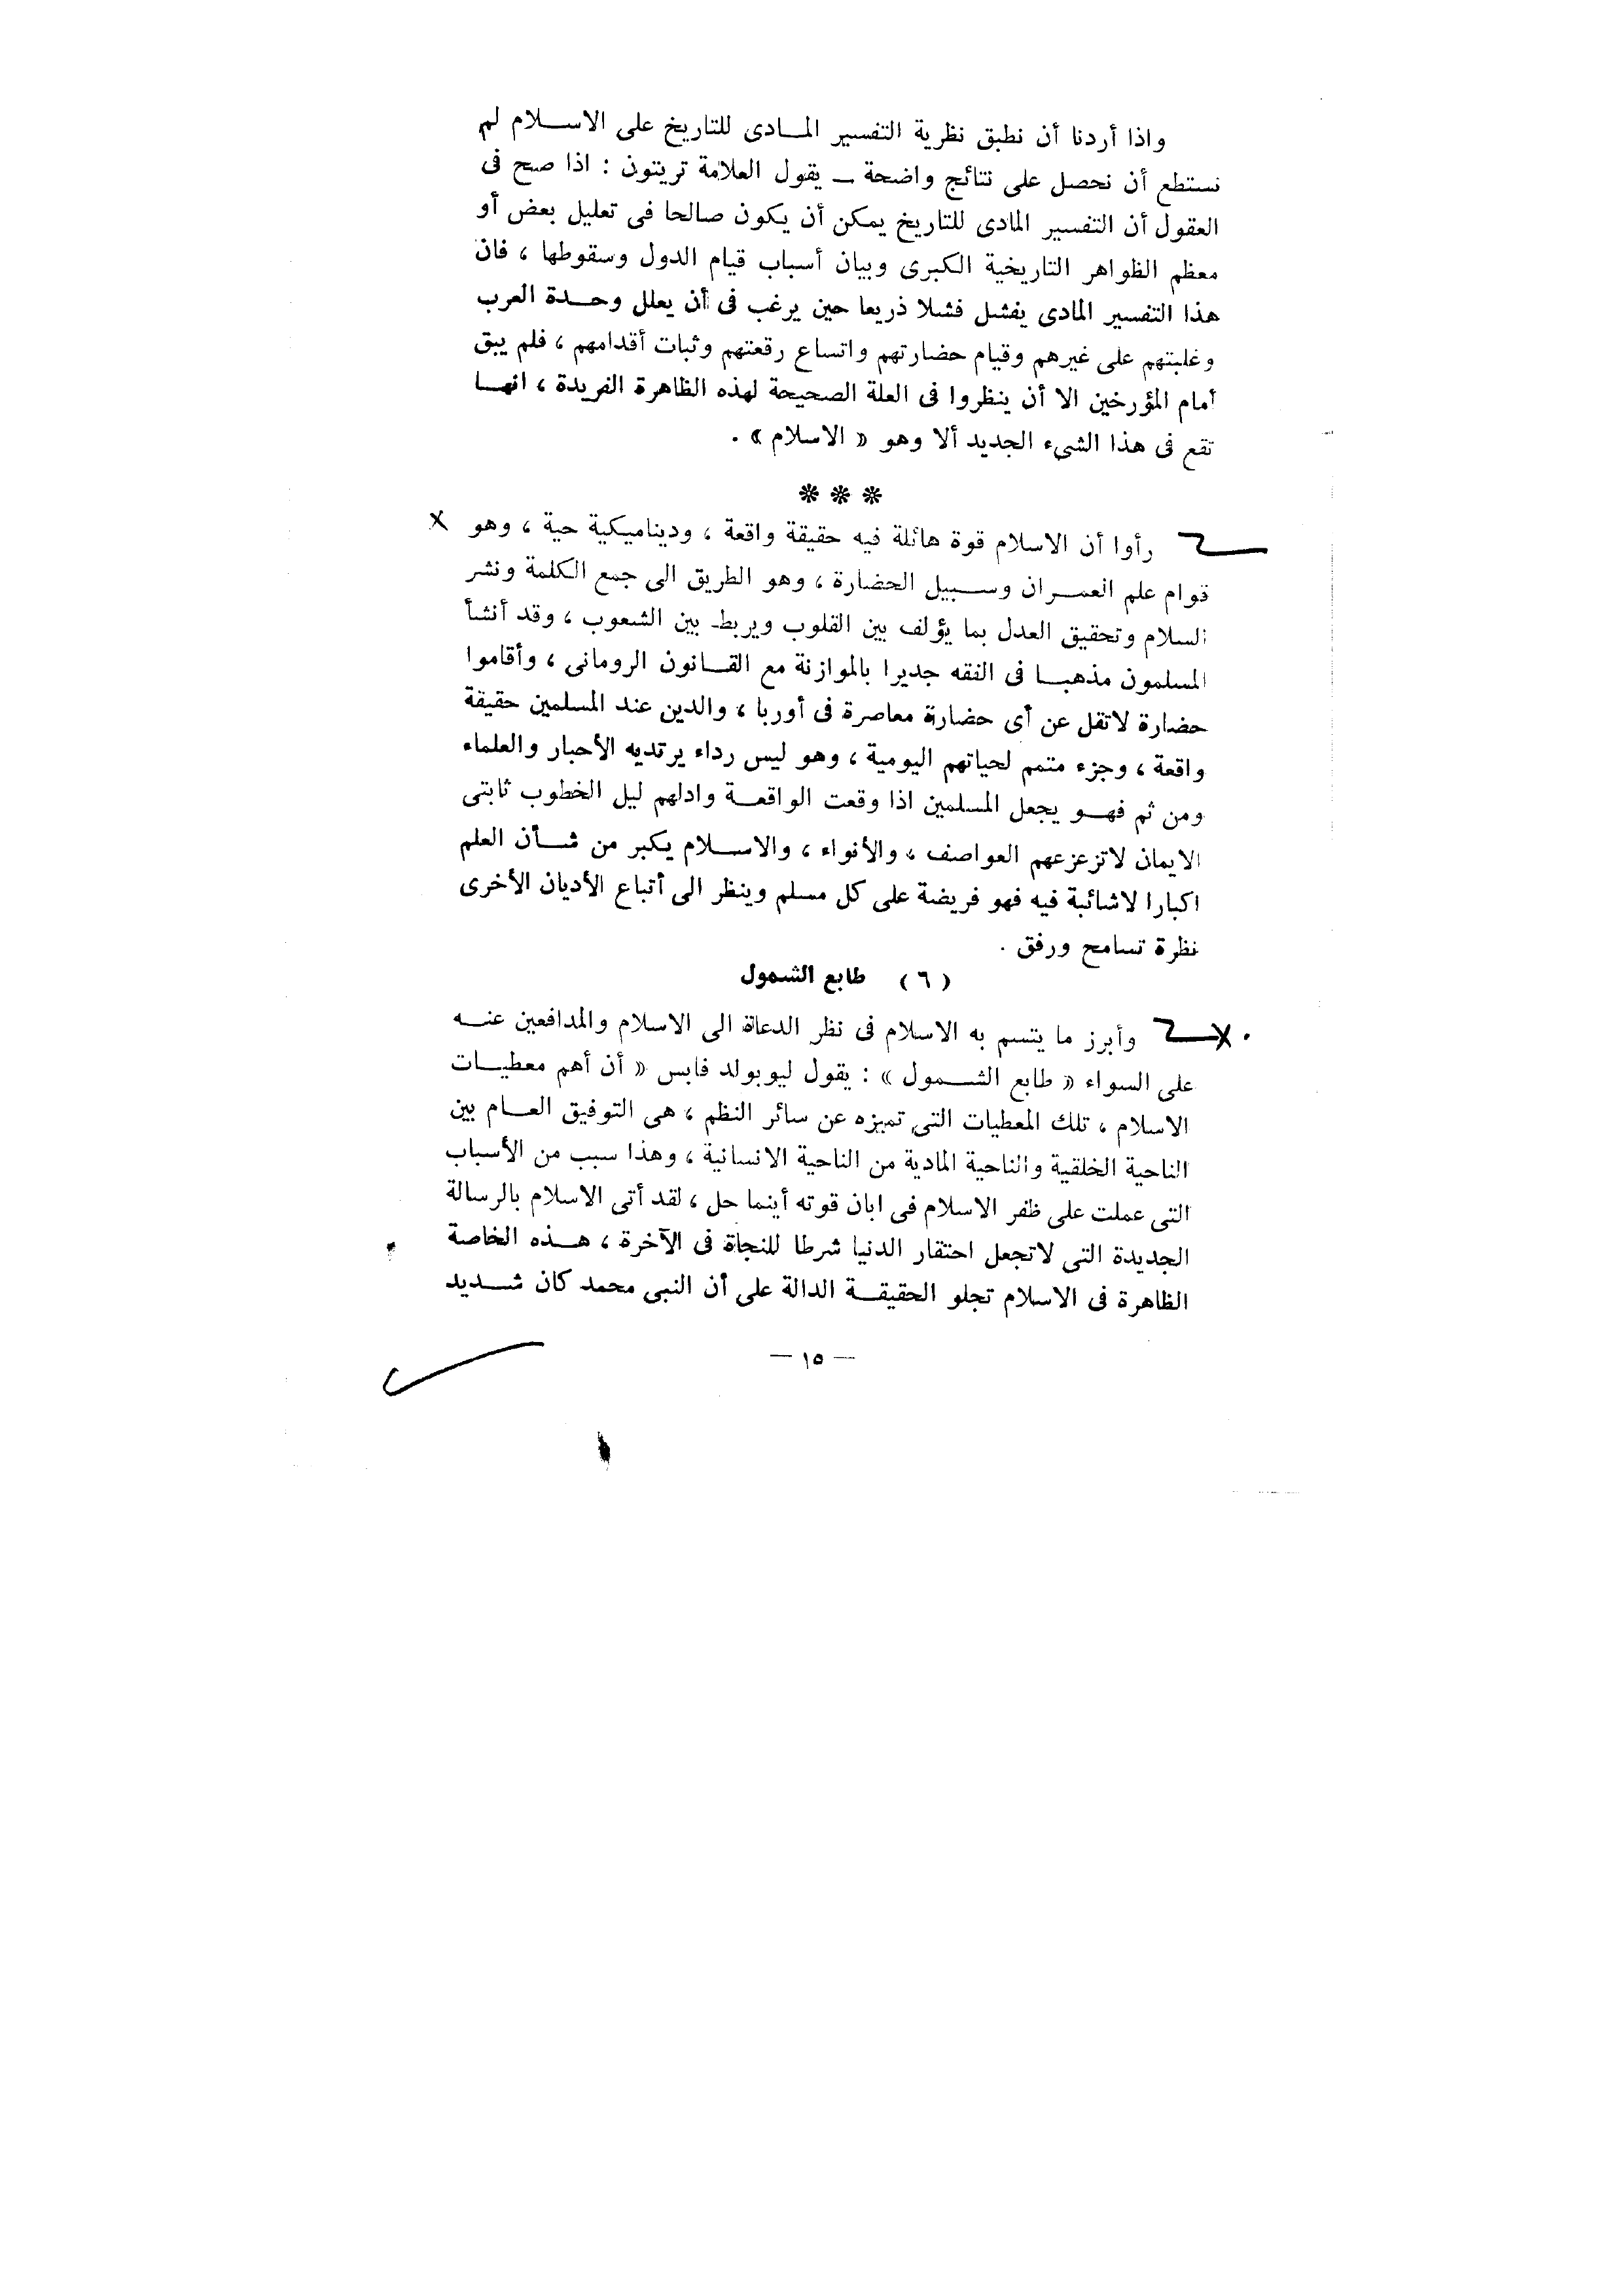 واذا أردنا أن نطبق نظرية التفسير المادى للتاريخ على الاسلام لم
نستطع أن نحصل على نتائج واضحة ــ يقول العلامة تريتون : اذا صح فى
العقول أن التفسير المادى للتاريخ يمكن أن يكون صالحا فى تعليل بعض أو
معظم الظواهر التاريخية الكبرى وبيان أسباب قيام الدول وسقوطها ، فان
هذا التفسير المادى يفشل فشلا ذريعا حين يرغب فى أن يعلل وحدة العرب
وغلبتهم على غيرهم وقيام حضارتهم واتساع رقعتهم وثبات أقدامهم ، فلم يبق
أمام المؤرخين الا أن ينظروا فى العلة الصحيحة لهذه الظاهرة الفريدة ، انها
تقع فى هذا الشىء الجديد ألا وهو « الاسلام » .
***
رأوا أن الاسلام قوة هائلة فيه حقيقة واقعة ، وديناميكية حية ، وهو
قوام علم العمران وسبيل الحضارة ، وهو الطريق الى جمع الكلمة ونشر
السلام وتحقيق العدل بما يؤلف بين القلوب ويربط بين الشعوب ، وقد أنشأ
المسلمون مذهبا فى الفقه جديرا بالموازنة مع القانون الرومانى ، وأقاموا
حضارة لاتقل عن أى حضارة معاصرة فى أوربا ، والدين عند المسلمين حقيقة
واقعة ، وجزء متمم لحياتهم اليومية ، وهو ليس رداء يرتديه الأحبار والعلماء
ومن ثم فهو يجعل المسلمين اذا وقعت الواقعة وادلهم ليل الخطوب ثابتى
الايمان لاتزعزعهم العواصف ، والأنواء ، والاسلام يكبر من شأن العلم
اكبارا لاشائبة فيه فهو فريضة على كل مسلم وينظر الى أتباع الأديان الأخرى
نظرة تسامح ورفق .
( ٦ ) طابع الشمول
وأبرز ما يتسم به الاسلام فى نظر الدعاة الى الاسلام والمدافعين عنه
على السواء « طابع الشمول » : يقول ليوبولد فابس « أن أهم معطيات
الاسلام ، تلك المعطيات التى تميزه عن سائر النظم ، هى التوفيق العام بين
الناحية الخلقية والناحية المادية من الناحية الانسانية ، وهذا سبب من الأسباب
التى عملت على ظفر الاسلام فى ابان قوته أينما حل ، لقد أتى الاسلام بالرسالة
الجديدة التى لاتجعل احتقار الدنيا شرطا للنجاة فى الآخرة ، هذه الخاصة
الظاهرة فى الاسلام تجلو الحقيقة الدالة على أن النبى محمد كان شديد
— ١٥ —